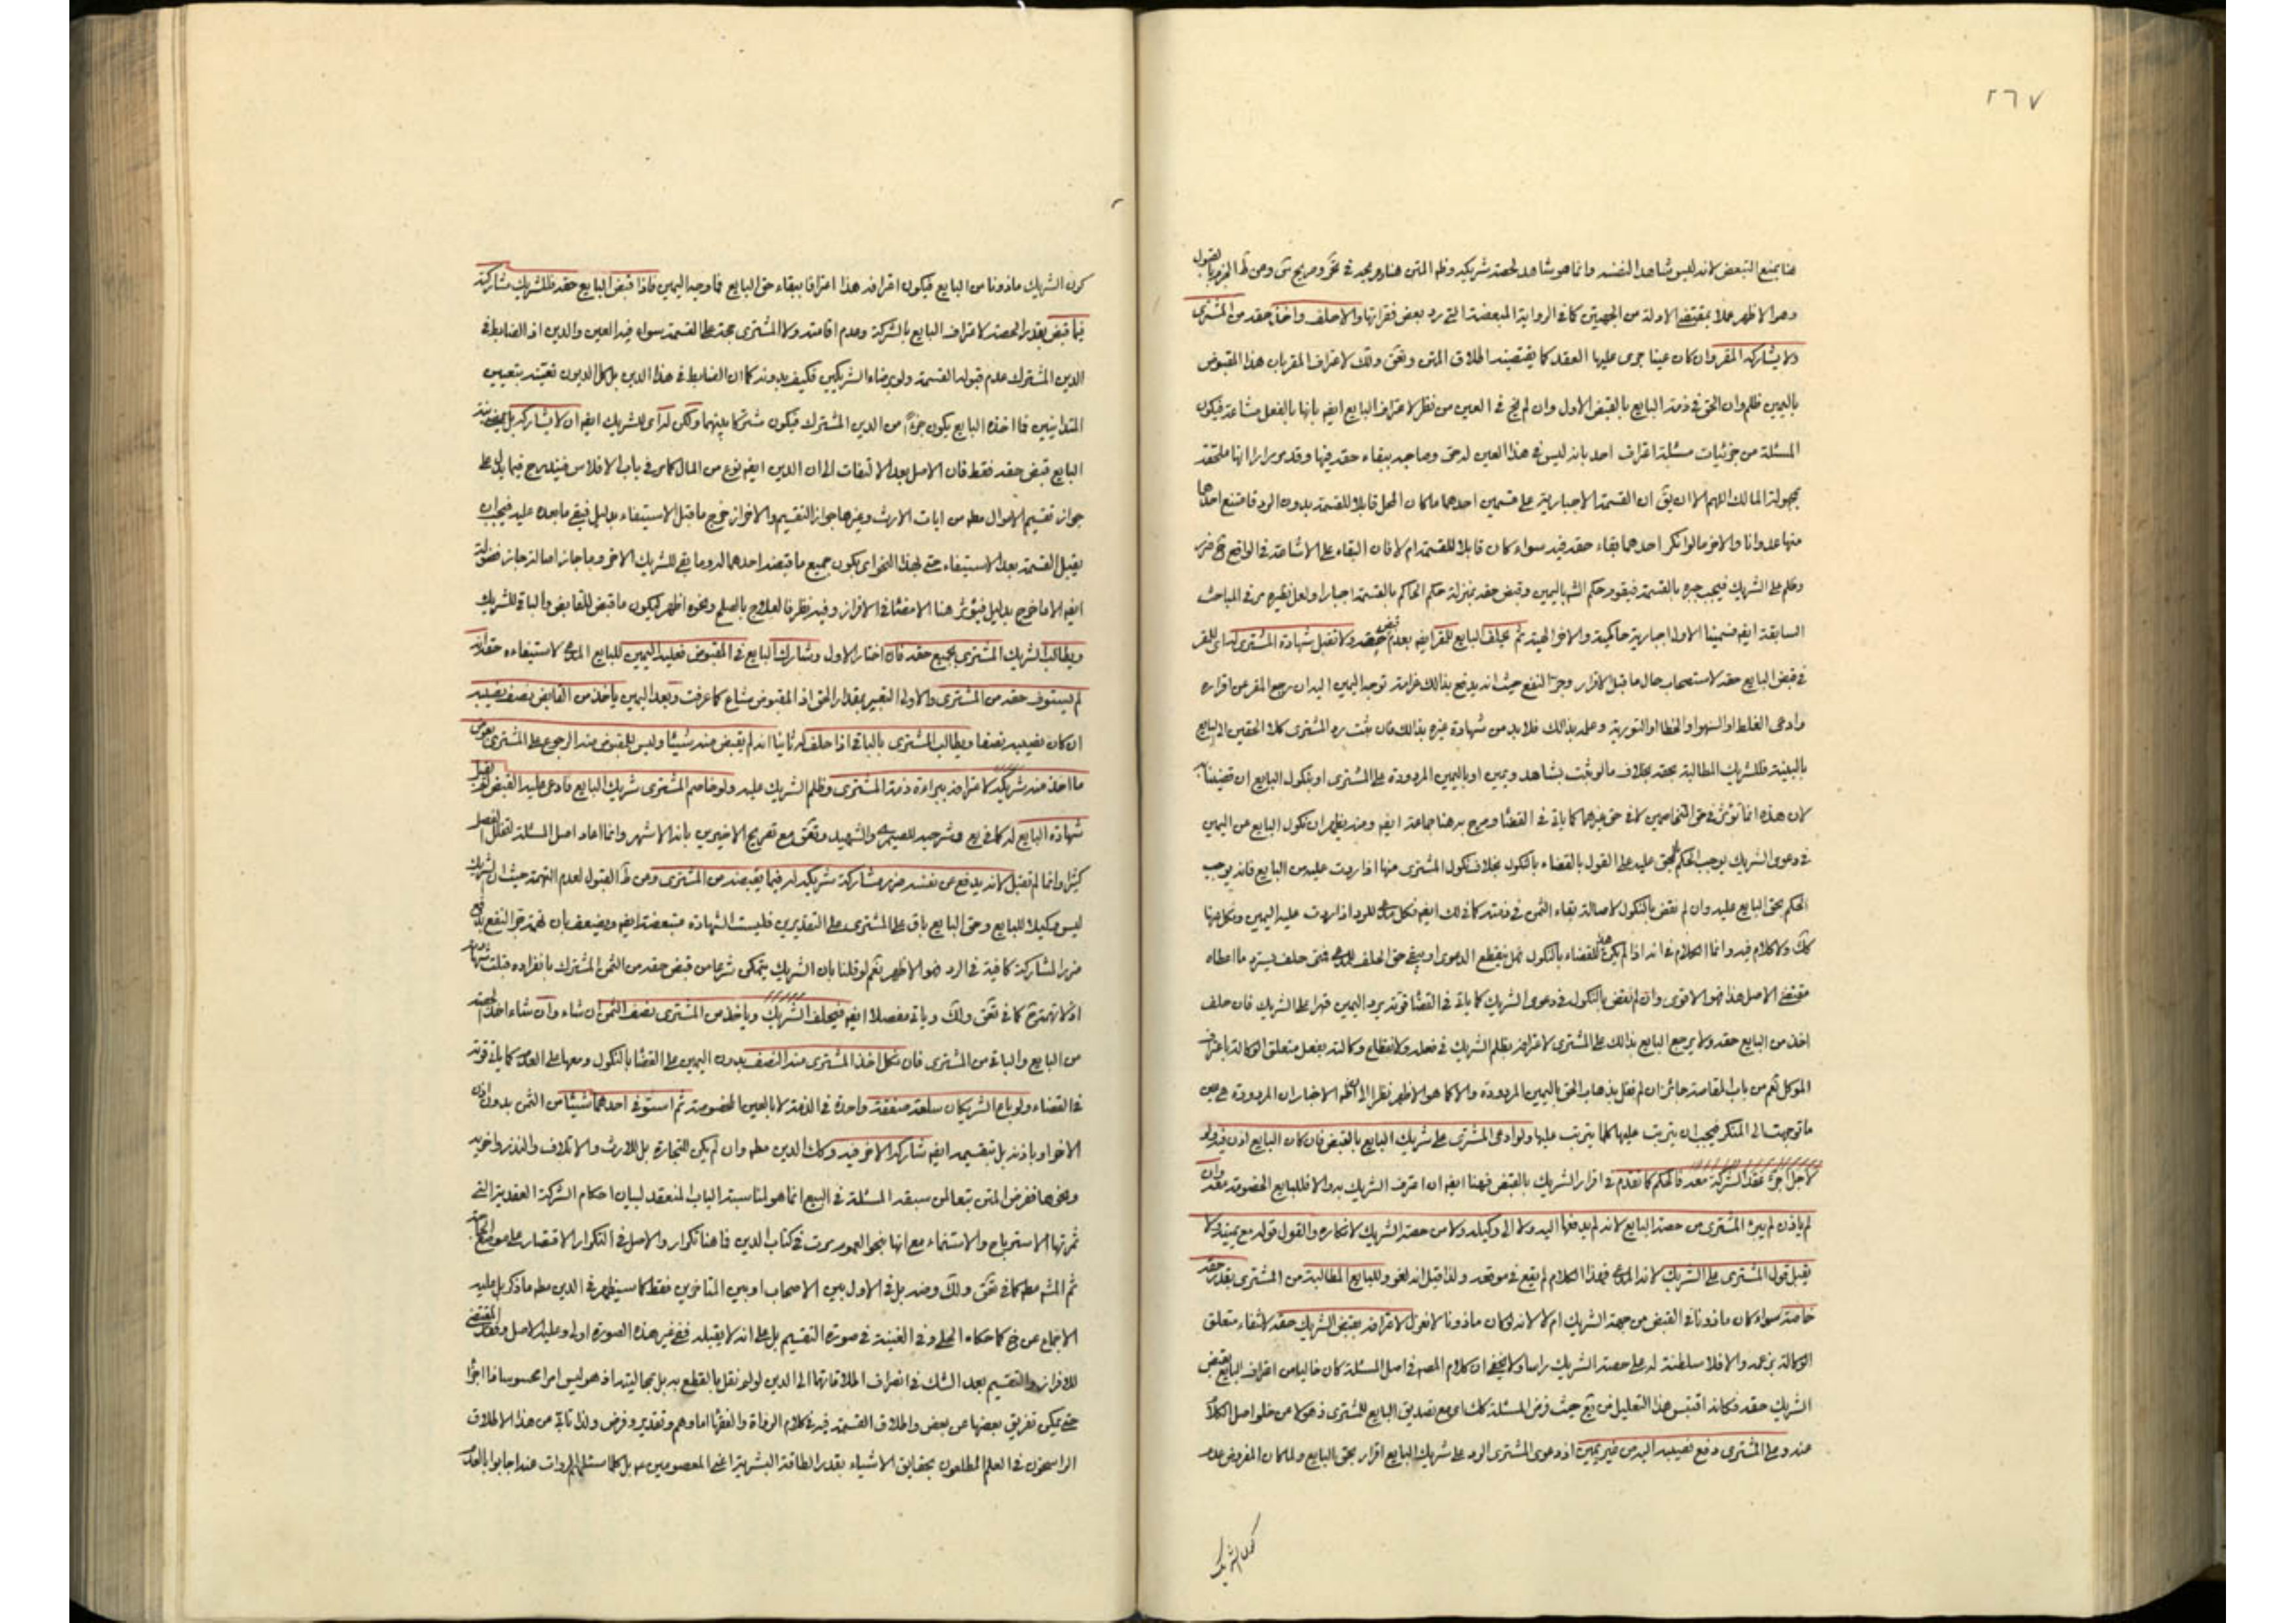 ٢٦٧
هنا يمنع التبعض لانه ليس شاهدا لنفسه وانما هو شاهد لحصة شريكه ونظم المتن هنا
وهو الاظهر عملا بمقتضى الادلة من الجهتين كما في الرواية المبعضة التي رد بعض فقراتها والا حلف واخذ حقه من المشترى
ولا يشاركه المقر وان كان عينا جرى عليها العقد كما يقتضيه اطلاق المتن وذلك لاعتراف المقر بان هذا المقبوض
باليمين ظلم وان الحق في ذمة البايع بالقبض الاول وان لم يخ في العين من نظر لاعتراف البايع ايضا بانها بالفعل مشاعة فيكون
المسئلة من جزئيات مسئلة اعتراف احد بانه ليس في هذا العين له حق وصاحبه ببقاء حقه فيها وقد مر مرارا انها ملحقة
بمجهولة المالك اللهم الا ان يق ان القسمة الاجبارية على قسمين احدهما ما كان المحل قابلا للقسمة بدون الرد فامتنع احدهما
منها عدوانا والاخر ما لو انكر احدهما بقاء حقه فيه سواء كان قابلا للقسمة ام لا فان البقاء على الاشاعة في الواقع ضرر
وظلم على الشريك فيجب جبره بالقسمة فيقوم حكم الش باليمين وقبض حقه بمنزلة حكم الحاكم بالقسمة اجبارا ولعل نظيره مر في المباحث
السابقة ايضا الاولى اجبارية حاكمية والاخر الهية ثم يحلف البايع للمقر ايضا بعدم قبض حقه ولا تقبل شهادة المشترى له اى للمقر
في قبض البايع حقه لاستصحاب حال ما قبل الاقرار وجر النفع حيث انه يدفع بذالك غرامة توجه اليمين اليه ان رجع المقر عن اقراره
وادعى الغلط او السهو او الخطا او التورية وعلله بذالك فلا بد من شهادة غيره بذالك فان ثبت رد المشترى كلا الحقين الى البايع
بالبينة فللشريك المطالبة بحقه بخلاف ما لو ثبت بشاهد ويمين او باليمين المردودة على المشترى او بنكول البايع ان قضينا
لان هذه انما تؤثر في حق المتخاصمين لا في حق غيرهما كما ياتى في القضا وصرح به هنا جماعة ايضا ومنه يظهر ان نكول البايع عن اليمين
في دعوى الشريك يوجب الحكم عليه على القول بالقضاء بالنكول بخلاف نكول المشترى منها اذا ردت عليه من البايع فانه يوجب
الحكم بحق البايع عليه وان لم نقض بالنكول لاصالة بقاء الثمن في ذمته
ولا كلام فيه وانما الكلام في انه اذا لم للقضاء بالنكول فهل ينقطع الدعوى او يبقى حق الحلف للمدعى فمتى حلف يسترد ما اعطاه
مقتضى الاصل هذا فهو الاقوى وان لم نقض بالنكول في دعوى الشريك كما ياتى في القضا قوته يرد اليمين قهرا على الشريك فان حلف
اخذ من البايع حقه ولا يرجع البايع بذالك على المشترى لاعترافه بظلم الشريك في فعله ولانقطاع وكالته بفعل متعلق الوكالة باعتراف
الموكل نعم من باب المقاصة جائز ان لم نقل بذهاب الحق باليمين المردودة والا كما هو الاظهر نظرا الى ظم الاخبار ان المردودة هى عين
ما توجهت الى المنكر فيجب ان يترتب عليها كلما يترتب عليها ولو ادعى المشترى على شريك البايع بالقبض فان كان البايع اذن فيه ولو
لاجل اجراء عقد الشركة معه فالحكم كما تقدم في اقرار الشريك بالقبض فهنا ايضا ان اعترف الشريك به والا فللبايع الخصومة معه وان
لم ياذن لم يبرء المشترى من حصة البايع لانه لم يدفعها اليه ولا الى وكيله ولا من حصة الشريك لانكاره والقول قوله مع يمينه ولا
يقبل قول المشترى على الشريك لانه المدعى فهذا الكلام لم يقع في موقعه ولذا قيل انه لغو وللبايع المطالبة من المشترى بقدر حقه
خاصة سواء كان ماذونا في القبض من جهة الشريك ام لا لانه لو كان ماذونا لانعزل لاعترافه بقبض الشريك حقه لانتفاء متعلق
الوكالة بزعمه والا فلا سلطنة له على حصة الشريك راسا ولا يخفى ان كلام المص في اصل المسئلة كان خاليا من اعتراف البايع بقبض
الشريك حقه فكانه اقتبس هذا التعليل من حيث فرض المسئلة كذلك اى مع تصديق البايع للمشترى ذهولا من خلو اصل الكلام
عنه وعلى المشترى دفع نصيبه اليه من غير يمين اذ دعوى المشترى الرد على شريك البايع اقرار بحق البايع ولما كان المفروض عدم
كون الشريك
كون الشريك ماذونا من البايع فيكون اعترافه هذا اعترافا ببقاء حق البايع فما وجه اليمين فاذا قبض البايع حقه فللشريك مشاركته
فيما قبض بقدر الحصة لاعتراف البايع بالشركة وعدم اقامته ولا المشترى حجة على القسمة سواء فيه العين والدين اذ الضابط في
الدين المشترك عدم قبوله القسمة ولو برضاء الشريكين فكيف بدونه كما ان الضابط في هذا الدين بل كل الديون تعينه بتعيين
المتداينين فما اخذه البايع يكون جزءا من الدين المشترك فيكون مشتركا بينهما ولكن له اى للشريك ايضا ان لا يشاركه بل
البايع قبض حقه فقط فان الاصل بعد الالتفات الى ان الدين ايضا نوع من المال كما مر في باب الافلاس فيندرج فيما يدل على
جواز تقسيم الاموال مطلقا من ايات الارث وغيرها جواز التقسيم والافراز خرج ما قبل الاستيفاء بدليل فبقى ما بعده عليه فيجب ان
يقبل القسمة بعد الاستيفاء حتى بهذا النحو اى يكون جميع ما قبضه احدهما له وما بقى للشريك الاخر وما جاز اصالة جاز فضولة
ايضا الا ما خرج بدليل فيؤثر هنا الامضا في الافراز وفيه نظر فالعلاج بالصلح ونحوه اظهر ليكون ما قبض للقابض والباقى للشريك
ويطالب الشريك المشترى بجميع حقه فان اختار الاول وشارك البايع في المقبوض فعليه اليمين للبايع المدعى لاستيفاءه حقه انه
لم يستوف حقه من المشترى والاولى التعبير بمقدار الحق اذ المقبوض مشاع كما عرفت وبعد اليمين ياخذ من القابض نصف نصيبه
ان كان نصيبه نصفا ويطالب المشترى بالباقى اذا حلف له ثانيا انه لم يقبض منه شيئا وليس للمقبوض منه الرجوع على المشترى بعوض
ما اخذ منه شريكه لاعترافه ببراءة ذمة المشترى وظلم الشريك عليه ولو خاصم المشترى شريك البايع فادعى عليه القبض لم يقبل
شهادة البايع له كما في والشهيد مع تصريح الاخيرين بانه الاشهر وانما اعاد اصل المسئلة لتخلل الفصل
كثيرا وانما لم تقبل لانه يدفع عن نفسه ضرر مشاركة شريكه له فيما يقبضه من المشترى وعن ط القبول لعدم التهمة حيث ان الشريك
ليس وكيلا للبايع وحق البايع باق على المشترى على التقديرين فليست الشهادة مبعضة ايضا ويضعف بان تهمة جر النفع بدفع
ضرر المشاركة كافية في الرد فهو الاظهر نعم لو قلنا بان الشريك يتمكن شرعا من قبض حقه من الثمن المشترك بانفراده قبلت شهادته
اذ لا تهمة ح كما في وياتى مفصلا ايضا فيحلف الشريك وياخذ من المشترى نصف الثمن ان شاء وان شاء اخذ حصته
من البايع والباقى من المشترى فان نكل اخذ المشترى منه النصف بدون اليمين على القضا بالنكول ومعها على العدم كما ياتى قوته
في القضاء ولو باع الشريكان سلعة صفقة واحدة في الذمة لا بالعين الخصوصة ثم استوفى احدهما شيئا من الثمن بدون اذن
الاخر او باذنه بل بتقسيمه ايضا شاركه الاخر فيه وكذا الدين مطلقا وان لم يكن للتجارة بل للارث والاتلاف والنذر واخويه
ونحوها ففرض المتن تبعا لمن سبقه المسئلة في البيع انما هو لمناسبة الباب المنعقد لبيان احكام الشركة العقدية التى
ثمرتها الاسترباح والاستنماء مع انها بنحو العموم مرت في كتاب الدين فما هنا تكرار والاصل في التكرار الاقتصار على موضع الحاجة
ثم المش مطلقا كما في وضه بل في الاول بين الاصحاب او بين المتاخرين فقط كما سيظهر في الدين مطلقا ما ذكر بل عليه
الاجماع عن خ كما حكاه الحلى وفي الغنية في صورة التقسيم بل على انه لا يقبله ففى غير هذه الصورة اولى وعليه الاصل وفقد المقتضى
للافراز والتقسيم بعد الشك في انصراف اطلاقاتها الى الدين لو لم نقل بالقطع به بل بمجازيته اذ هو ليس امرا محسوسا ذا اجزاء
حتى يمكن تفريق بعضها عن بعض واطلاق القسمة فيه في كلام الرواة والفقها اما وهم وتقدير وفرض ولذا تابى من هذا الاطلاق
الراسخون في العلم المطلعون بحقايق الاشياء بقدر الطاقة البشرية اعنى المعصومين بل كلما سئلهم الروات عنه اجابوا بالعدم